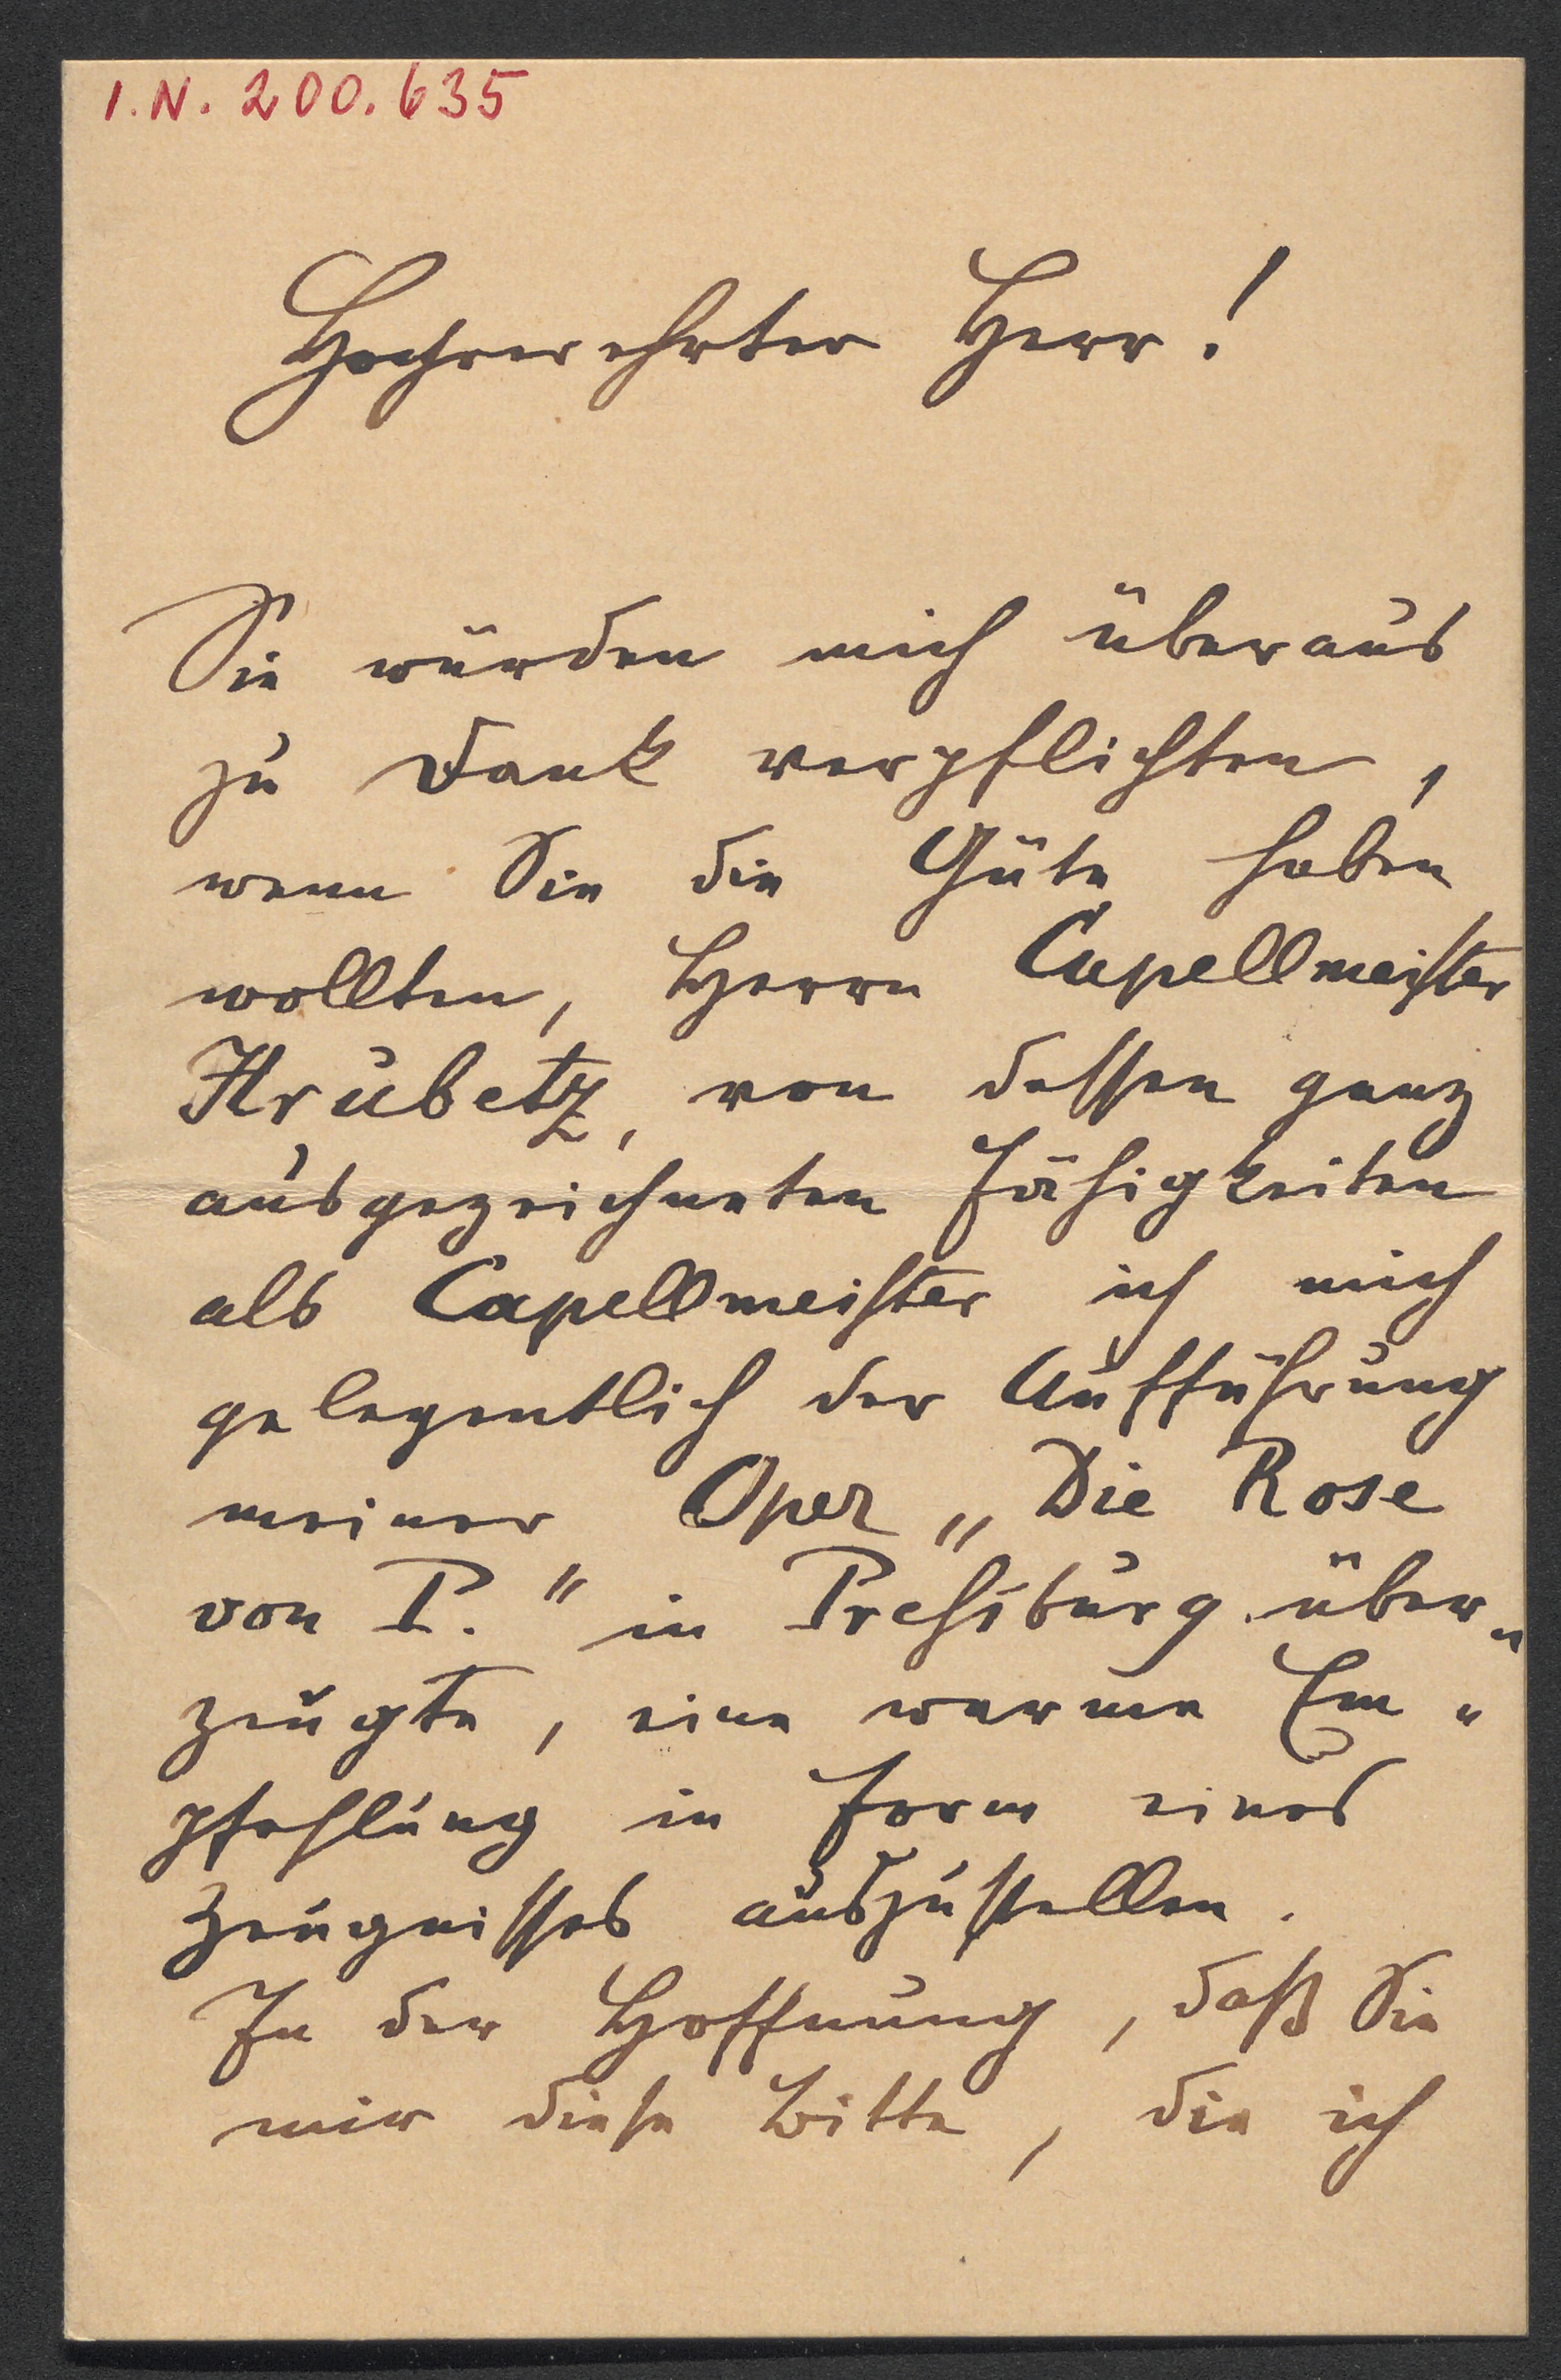 I.N. 200.635
Hochverehrter Herr!
Sie würden mich überaus
zu Dank verpflichten,
wenn Sie die Güte haben
wollten, Herrn Capellmeister
Hrubetz, von dessen ganz
ausgezeichneten Fähigkeiten
als Capellmeister ich mich
gelegentlich der Aufführung
meiner Oper „Die Rose
von P." in Preßburg über„
zeugte, eine warme Em„
pfehlung in Form eines
Zeugnisses auszustellen.
In der Hoffnung, daß Sie
mir diese Bitte, die ich